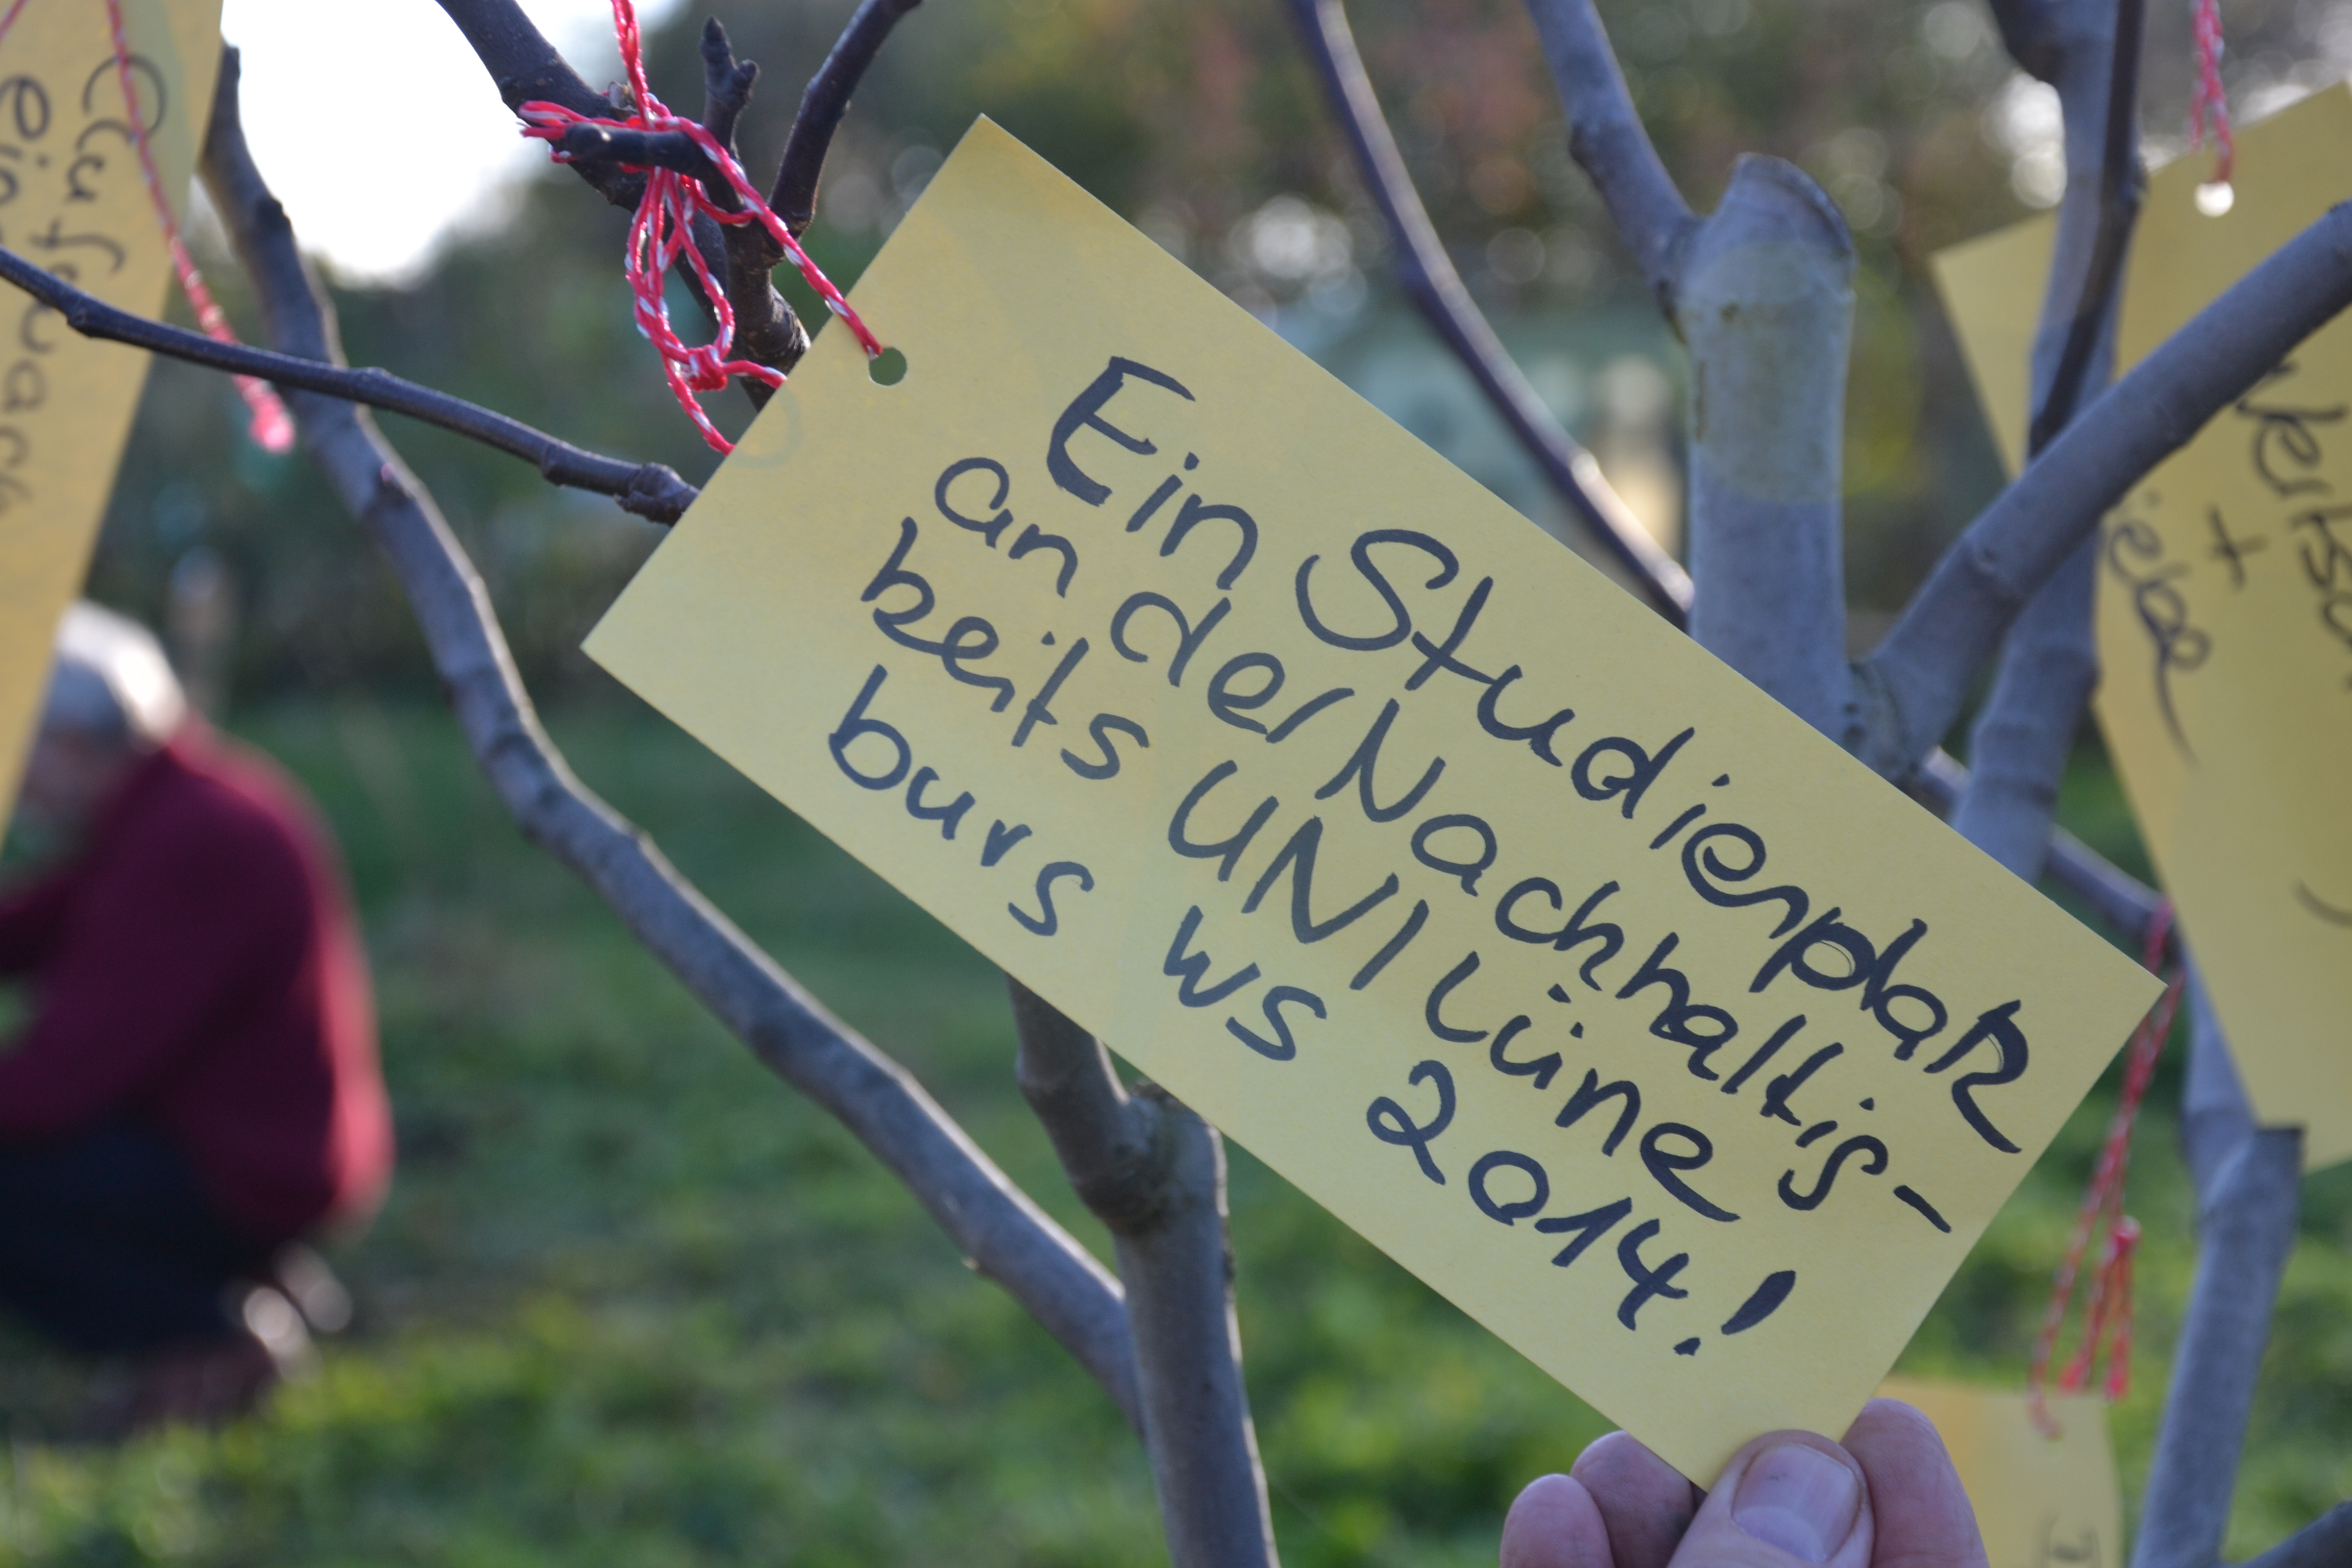 Ein Studienplatz
an der Nachhaltig-
keits UNI Lüne
burg WS 2014!